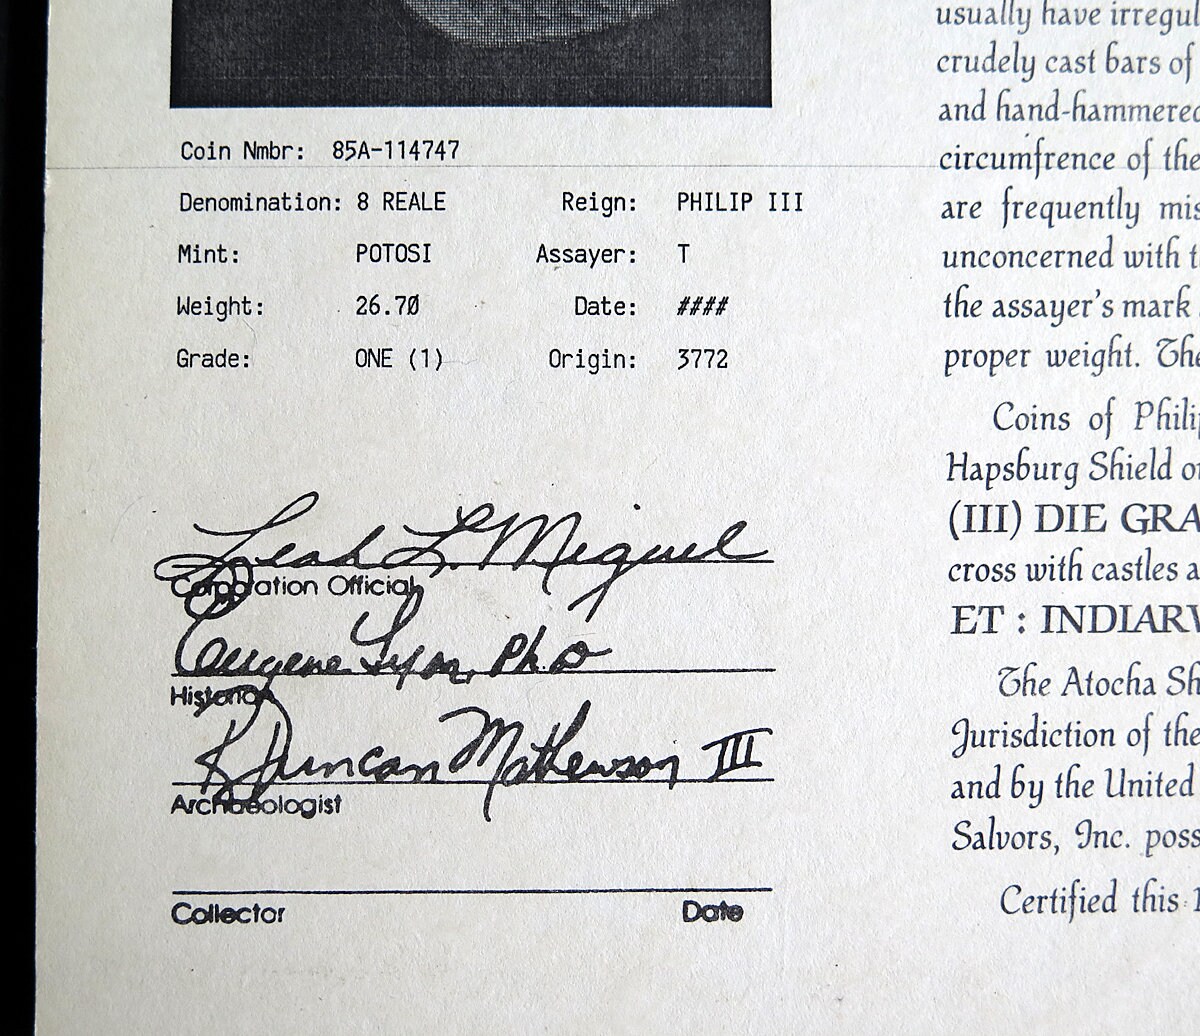 Coin Nmbr: 85A-114747
Denomination: 8 REALE Reign: PHILIP III
Mint: POTOSI Assayer: T
Weight: 26.70 Date: ####
Grade: ONE (1) Origin: 3772
Leah L. Miguel
Corporation Official
Eugene Lyon, Ph.D
Historian
R Duncan Mathewson III
Archaeologist
Collector Date
usually have irregul
crudely cast bars of
and hand-hammered
circumfrence of the
are frequently mis
unconcerned with t
the assayer's mark
proper weight. The
Coins of Philip
Hapsburg Shield o
(III) DIE GRA
cross with castles a
ET : INDIARV
The Atocha Sh
Jurisdiction of the
and by the United
Salvors, Inc. poss
Certified this 1